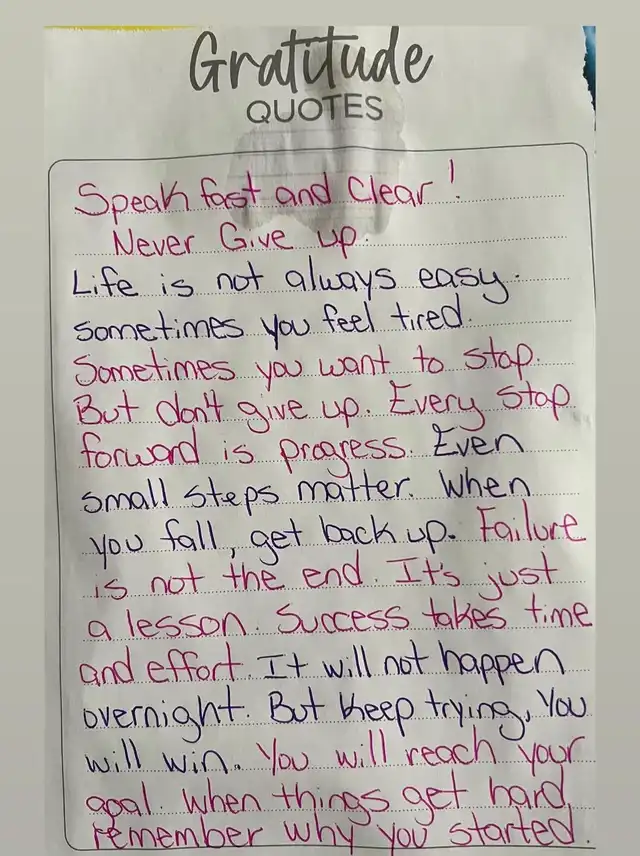 Gratitude
QUOTES
Speak fast and Clear!
Never Give up.
Life is not always easy.
sometimes you feel tired.
Sometimes you want to stop.
But don't give up. Every stop
forward is progress. Even
small steps matter. When
you fall, get back up. Failure
is not the end. It's just
a lesson. Success takes time
and effort. It will not happen
overnight. But keep trying, You
will win. You will reach your
goal. When things get hard,
remember why you started.